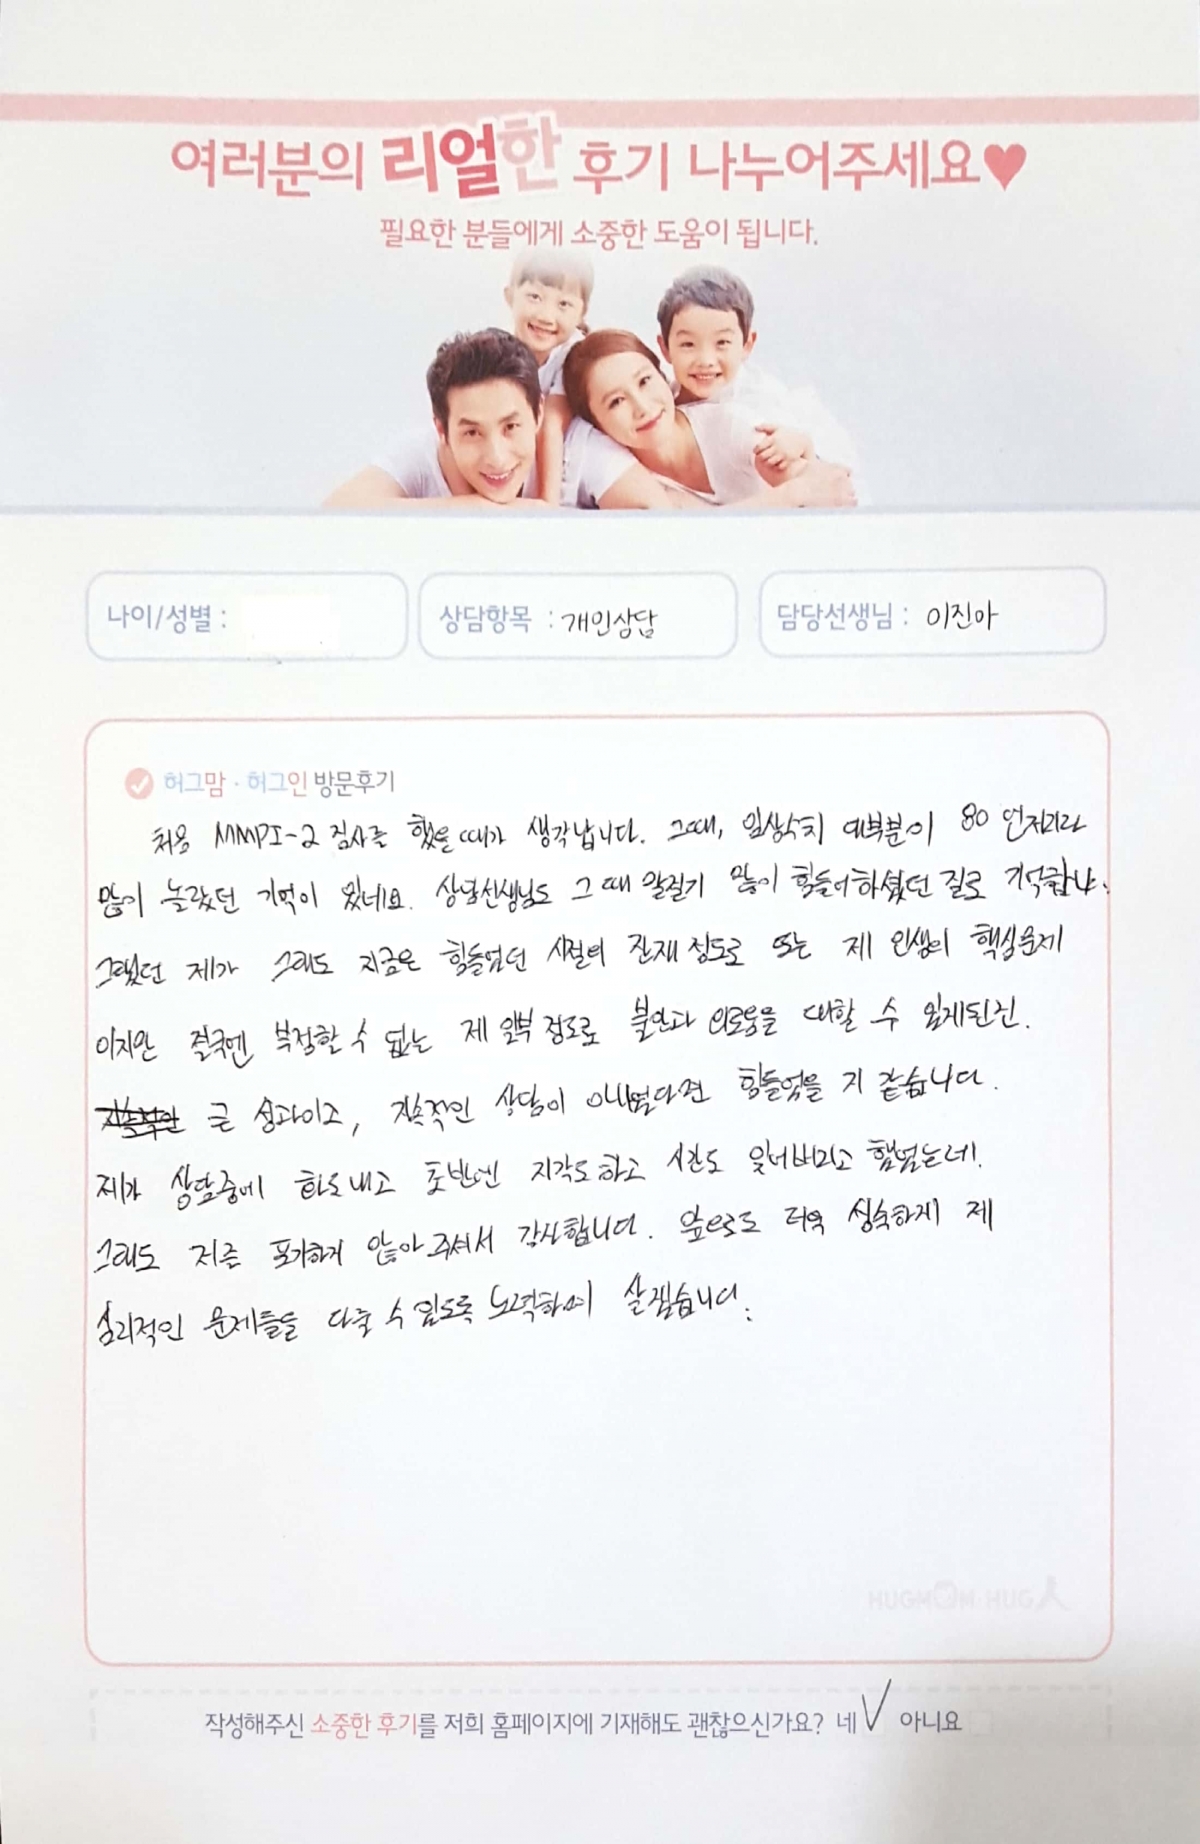 여러분의 리얼한 후기 나누어주세요♥
필요한 분들에게 소중한 도움이 됩니다.
나이/성별 :
상담항목 : 개인상담
담당선생님 : 이진아
허그맘 · 허그인 방문후기
처음 MMPI-2 검사를 했을 때가 생각납니다. 그때, 임상수치 대부분이 80 언저리라
많이 놀랐던 기억이 있네요. 상담선생님도 그 때 많이 힘들어하셨던 걸로 기억합니다.
그랬던 제가 그래도 지금은 힘들었던 시절의 잔재 정도로 또는 제 인생의 핵심문제
이지만 결국엔 부정할 수 없는 제 일부 정도로 불안과 외로움을 대할 수 있게된건.
큰 성과이고, 지속적인 상담이 아니었다면 힘들었을 거 같습니다.
제가 상담중에 화도내고 초반엔 지각도하고 시간도 잊어버리고 했었는데.
그래도 저를 포기하지 않아주셔서 감사합니다. 앞으로도 더욱 성숙하게 제
심리적인 문제들을 다룰 수 있도록 노력하며 살겠습니다.
HUGMOM HUG
작성해주신 소중한 후기를 저희 홈페이지에 기재해도 괜찮으신가요? 네 ✓ 아니요